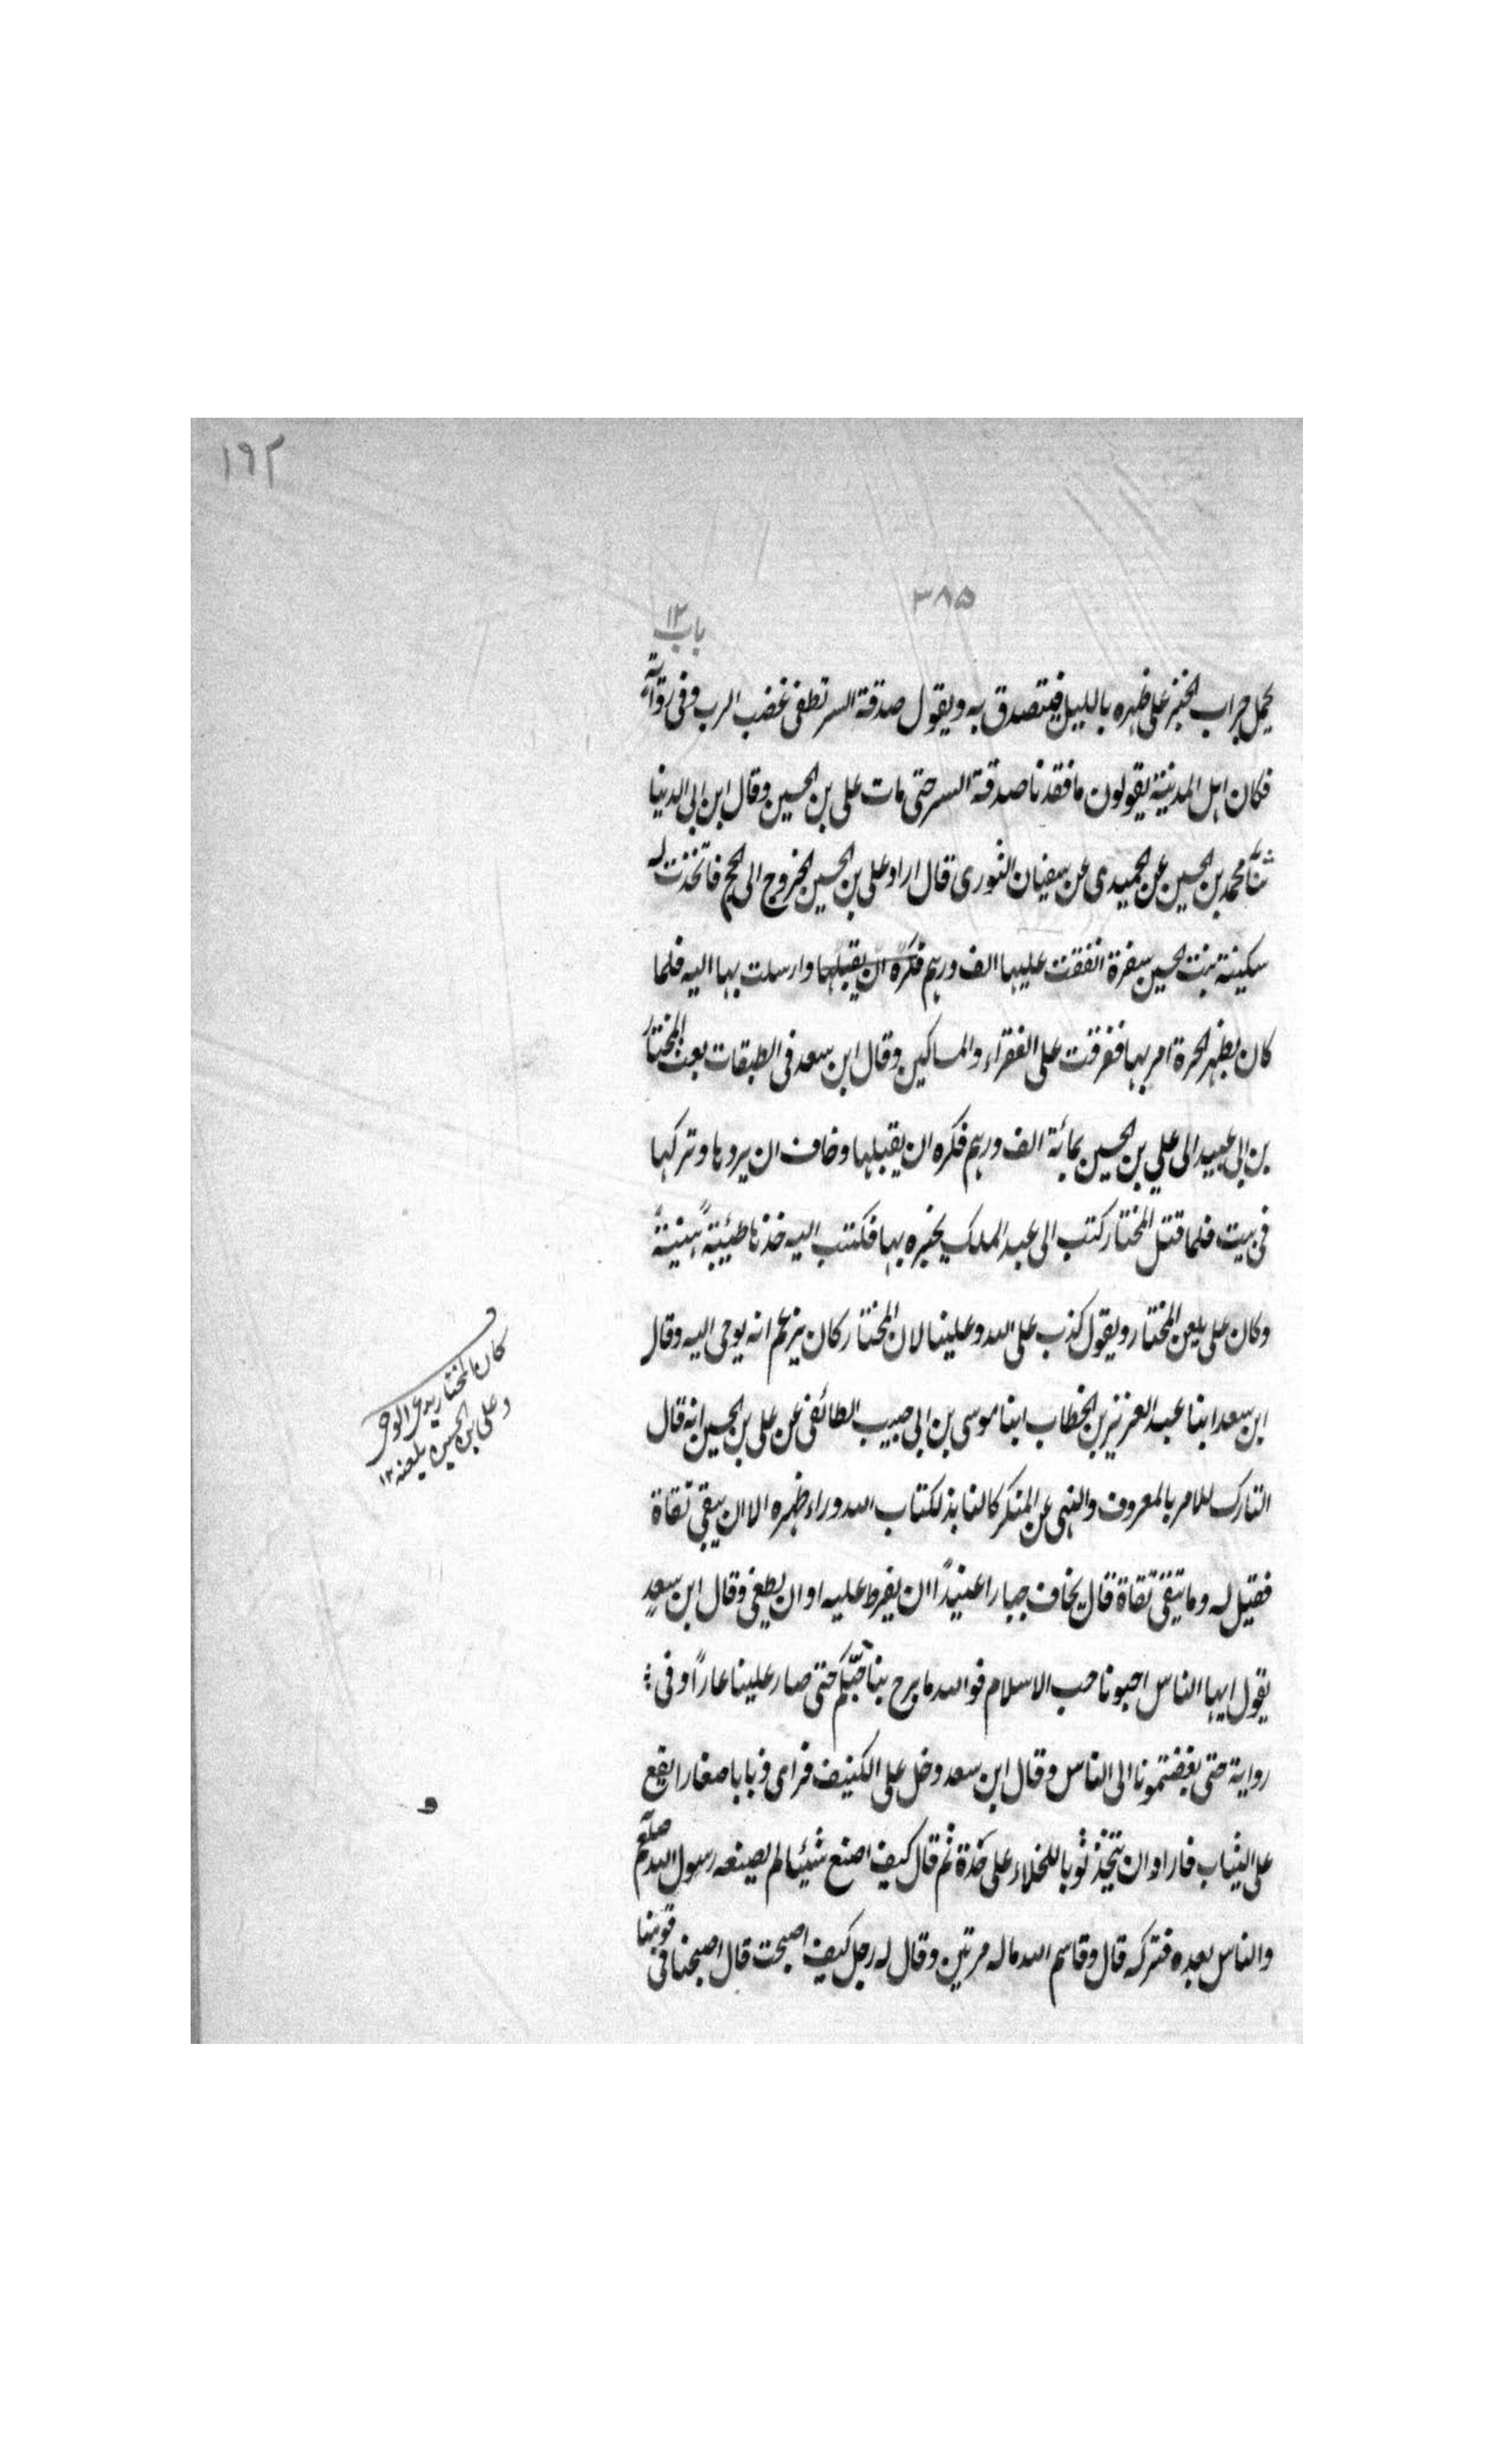 ١٩٢
٣٨٥
باب ١٢
يحمل جراب الخبز على ظهره بالليل فيتصدق به ويقول صدقة السر تطفى غضب الرب وفى رواية
فكان اهل المدينة يقولون ما فقدنا صدقة السر حتى مات على بن الحسين وقال ابن ابى الدنيا
ثنا محمد بن الحسين عن الحميدى عن سفيان الثورى قال اراد على بن الحسين الخروج الى الحج فاتخذت له
سكينة بنت الحسين سفرة انفقت عليها الف درهم فكره ان يقبلها وارسلت بها اليه فلما
كان بظهر الحرة امر بها ففرقت على الفقراء والمساكين وقال ابن سعد فى الطبقات بعث المختار
بن ابى عبيد الى على بن الحسين بمائة الف درهم فكره ان يقبلها وخاف ان يردها وتركها
فى بيت فلما قتل المختار كتب الى عبد الملك يخبره بها فكتب اليه خذها طيبةً هنيئةً
وكان على يلعن المختار ويقول كذب على الله وعلينا لان المختار كان يزعم انه يوحى اليه وقال
ابن سعد ابنا عبد العزيز بن الخطاب ابنا موسى بن ابى حبيب الطائفى عن على بن الحسين انه قال
التارك للامر بالمعروف والنهى عن المنكر كالنابذ لكتاب الله وراء ظهره الا ان يتقى تقاة
فقيل له وما يتقى تقاة قال يخاف جبارا عنيدًا ان يفرط عليه او ان يطغى وقال ابن سعد
يقول ايها الناس احبونا حب الاسلام فوالله ما برح بنا حبّكم حتى صار علينا عارًا وفى
رواية حتى بغضتمونا الى الناس وقال ابن سعد دخل على الكنيف فراى ذبابا صغارا يقع
على الثياب فاراد ان يتخذ ثوبا للخلاء على حدة ثم قال كيف اصنع شيئا لم يصنعه رسول الله صلعم
والناس بعده فتركه قال وقاسم الله ماله مرتين وقال له رجل كيف اصبحت قال اصبحنا فى قومنا
كان المختار يدعى الوحى
وعلى ابن الحسين يلعنه ١٢